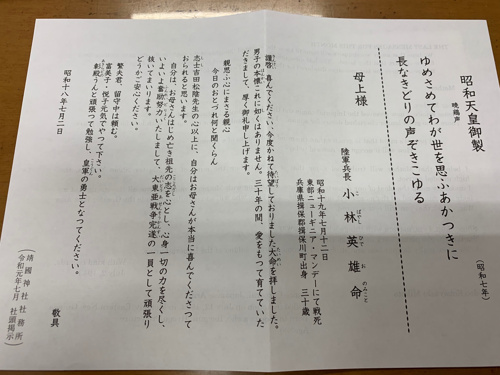 昭和天皇御製
暁鶏声
ゆめさめてわが世を思ふあかつきに
長なきどりの声ぞきこゆる
(昭和七年)
陸軍兵長 小林英雄命
こ ばやし ひで お のみこと
昭和十九年七月十二日
東部ニューギニア・マンデーにて戦死
兵庫県揖保郡揖保川町出身 三十歳
母上様
謹啓 喜んでください、今度かねて待望しておりました大命を拝しました。
男子の本懐これに如くはありません。三十年の間、愛をもつて育てていた
だきまして、厚く御礼申し上げます。
親思ふ心にまさる親心
今日のおとづれ何と聞くらん
志士吉田松陰先生の心以上に、自分はお母さんが本当に喜んでくださつて
おられると思います。
自分は、お母さんはじめ亡き祖先の志を心とし、心身一切の力を尽くし、
いよいよ奮励努力いたしまして、大東亜戦争完遂の一員として頑張り
抜いてまいります。
どうかご安心ください。
繁夫君、留守中は頼む。
富美子・悦子元気でやつて下さい。
彰殿うんと頑張つて勉強し、皇軍の勇士となつてください。
敬具
昭和十八年七月二日
靖國神社社務所
令和元年七月 社頭掲示